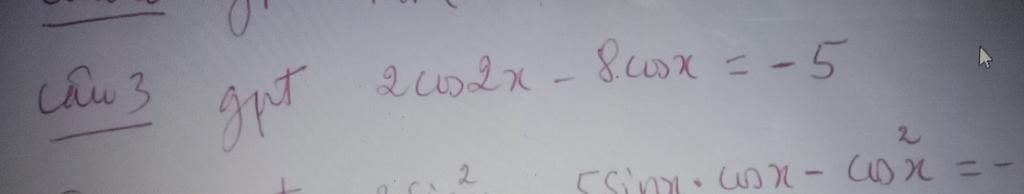 Câu 3 gpt 2cos2x - 8.cosx = -5
5sinx.cosx - cos²x = -